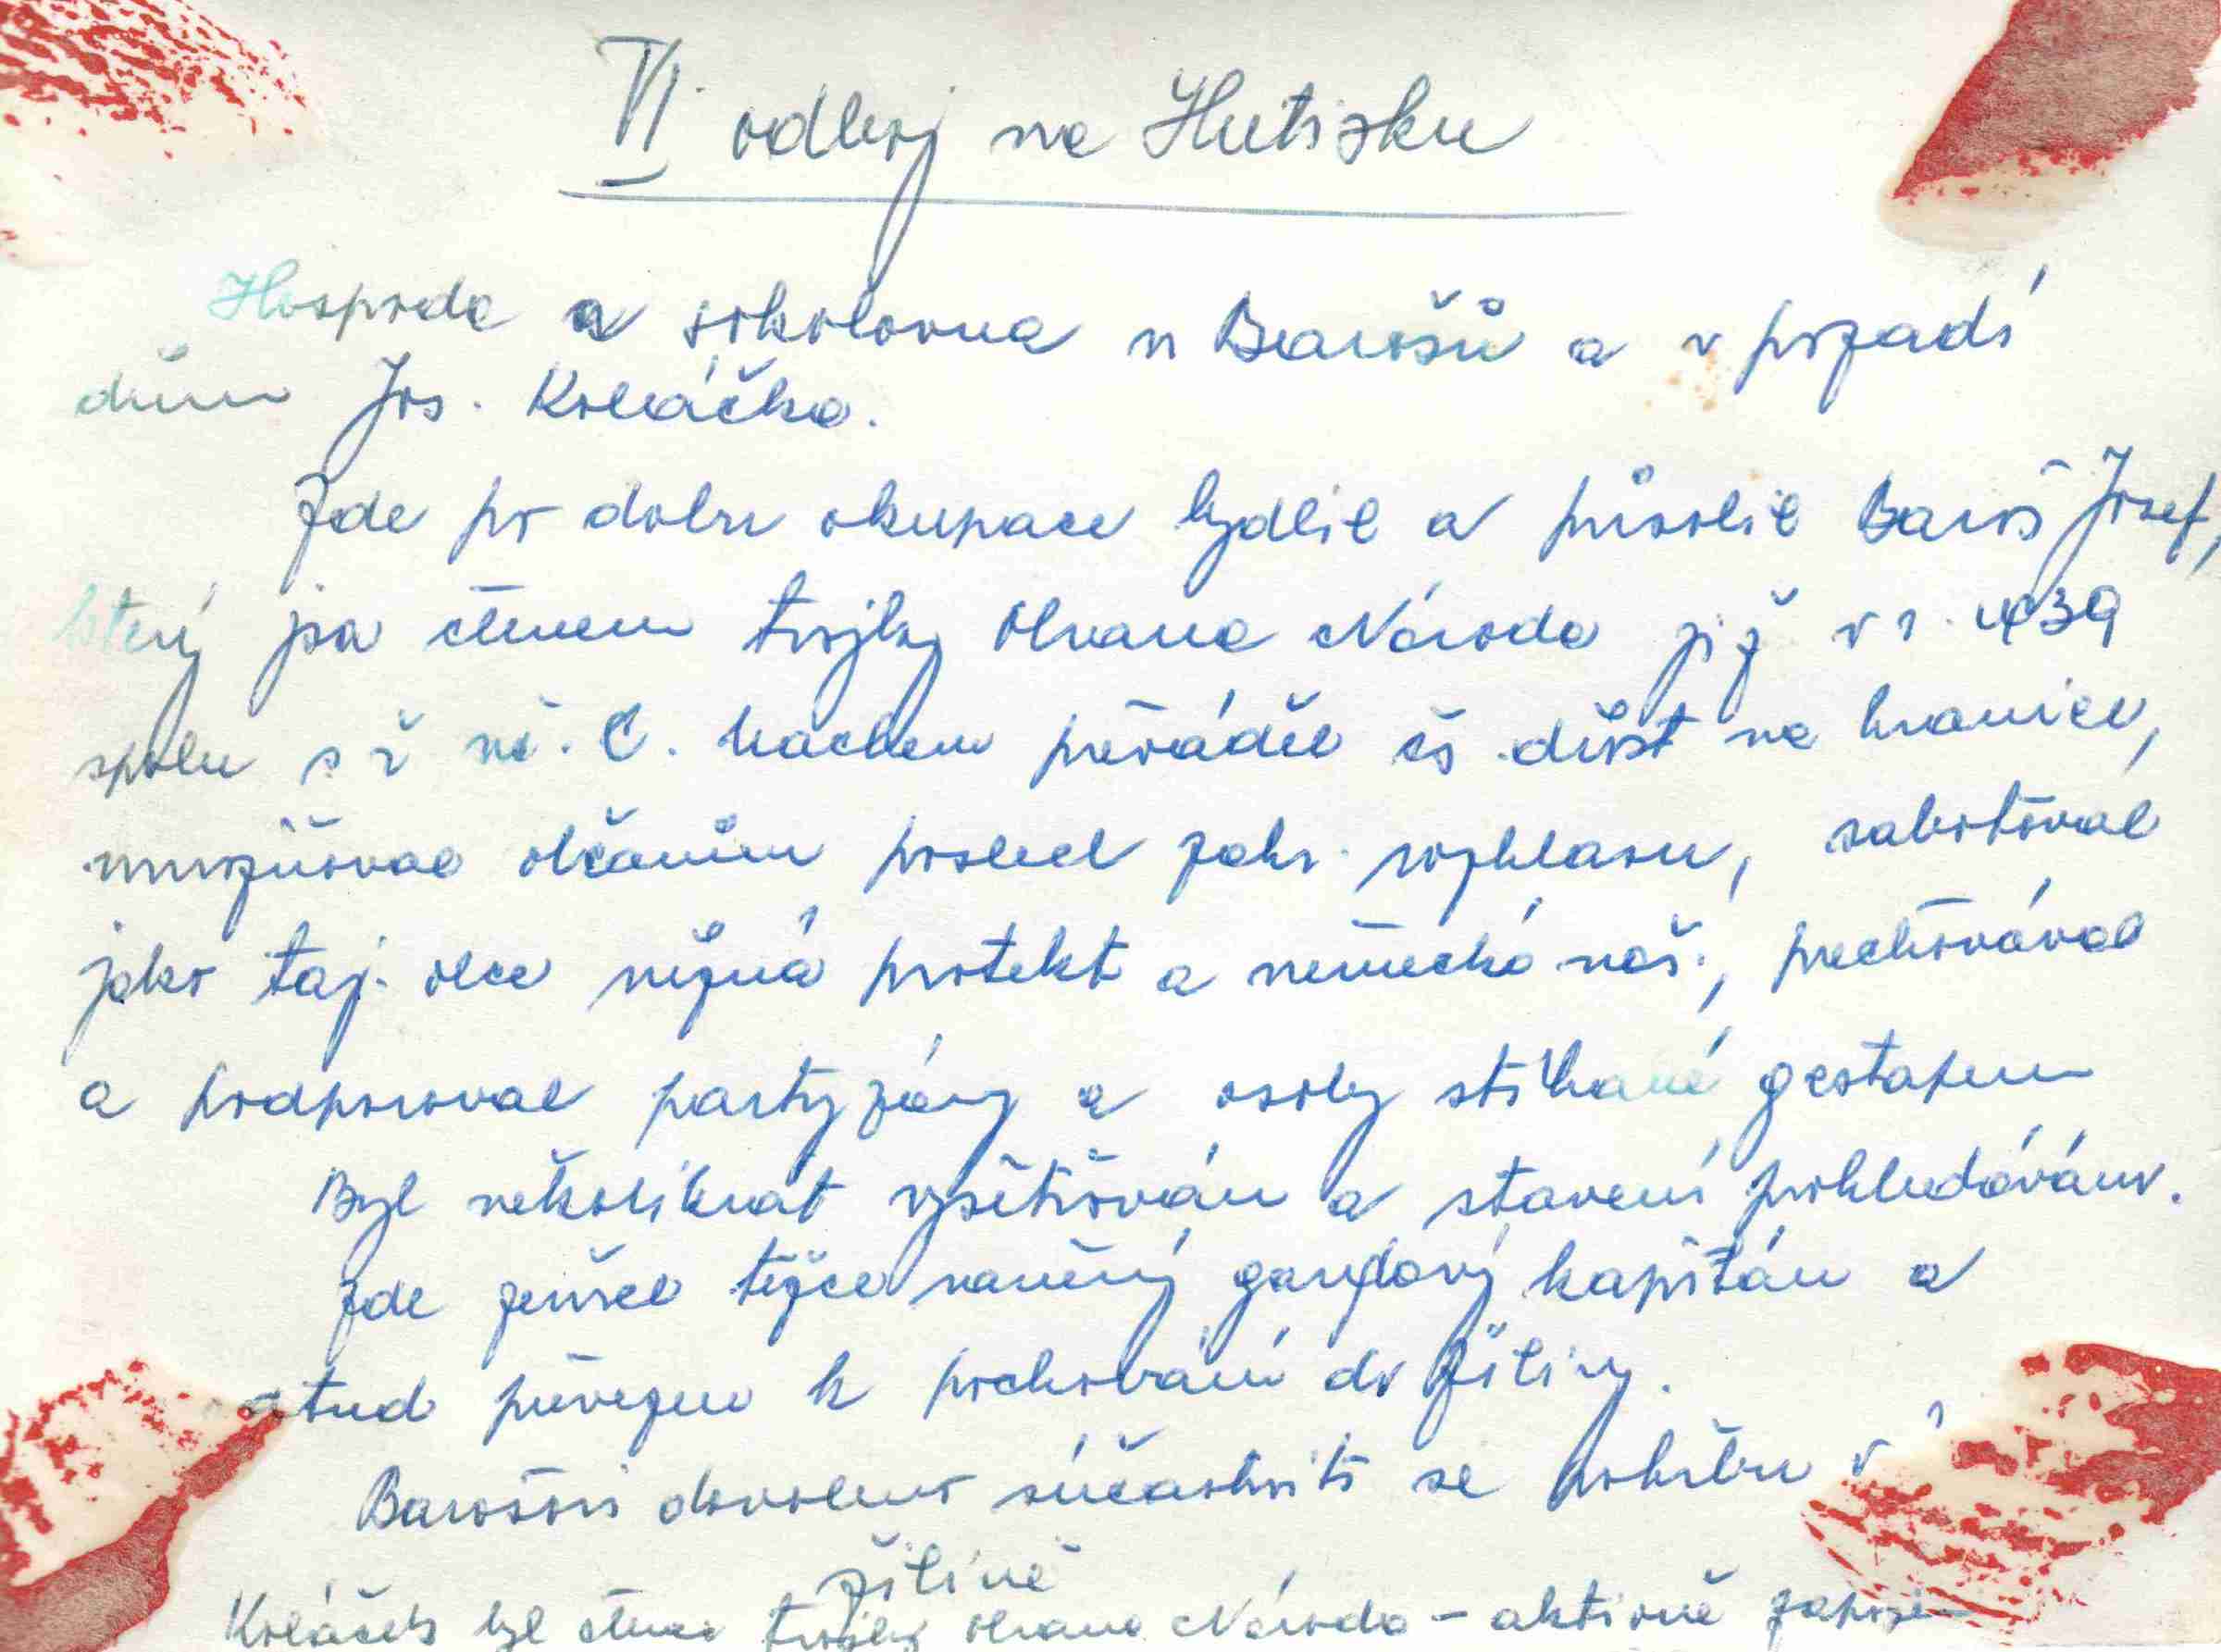 VI. odboj na Hutisku
Hospoda a sokolovna u Barošů a v pozadí
dům Jos. Koláčka.
Zde po dobu okupace bydlil a působil Baroš Josef,
který jsa členem trojky Obrana Národa již v r. 1939
spolu s ř. uč. C. Machem převáděl čs. důst na hranice,
umožňoval občanům poslech zahr. rozhlasu, sabotoval
jako taj. obce různá protekt a německá nař., přechovával
a podporoval partyzány a osoby stíhané gestapem
Byl několikrát vyšetřován a stavení prohledáváno.
Zde zemřel těžce raněný gardový kapitán a
otud převezen k pochování do Žiliny.
Barošovi dovoleno súčastniti se pohřbu v
Žilině
Koláček byl členem trojky Obrana Národa – aktivně zapoje-